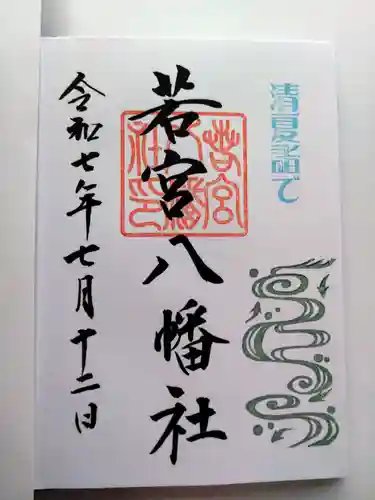 清夏詣で
若宮八幡社
若宮八幡社印
令和七年七月十二日